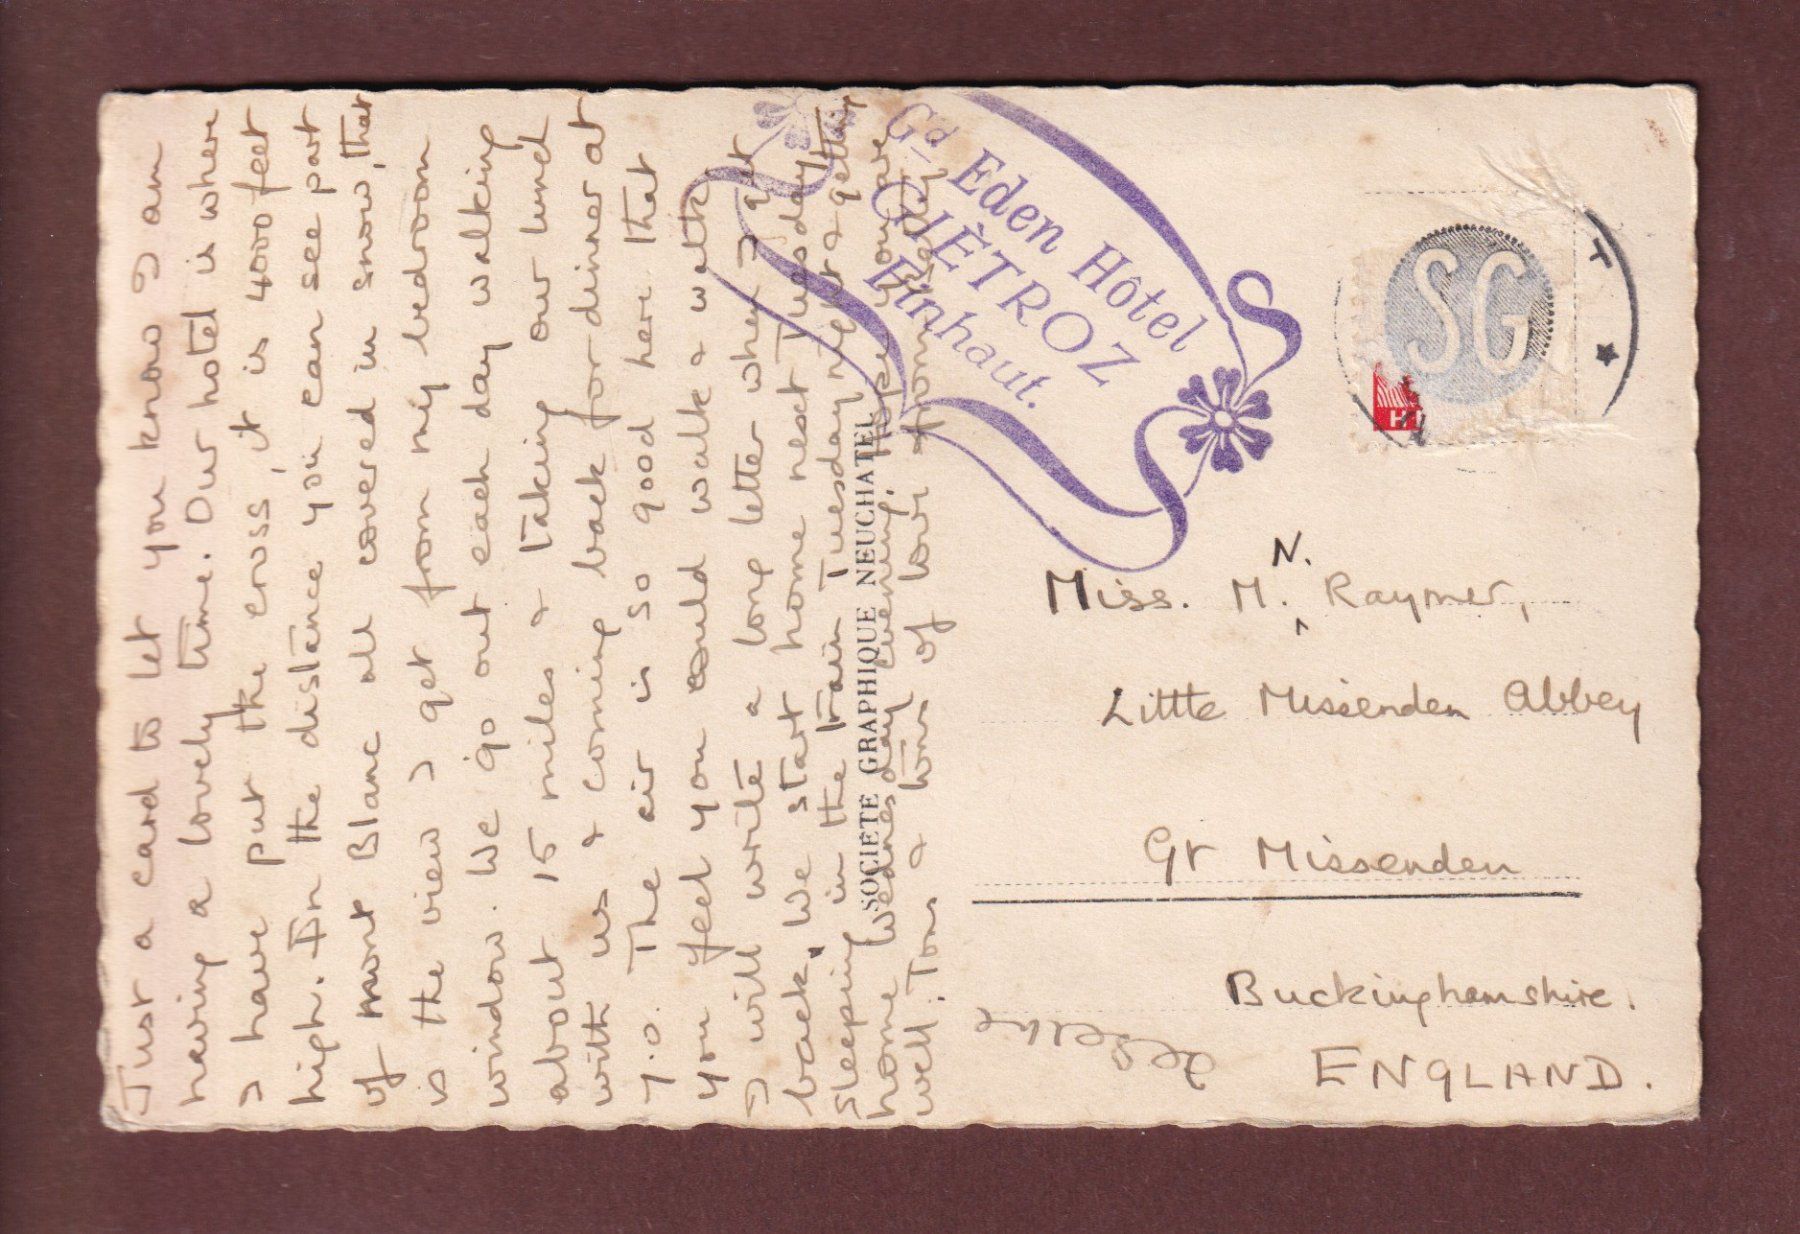 Just a card to let you know I am
having a lovely time. Our hotel is where
I have put the cross, it is 4000 feet
high. In the distance you can see part
of Mont Blanc all covered in snow, that
is the view I get from my bedroom
window. We go out each day walking
about 15 miles & taking our lunch
with us & coming back for dinner at
7.0. The air is so good here that
you feel you could walk & walk
I will write a long letter when I get
back. We start home next Tuesday
sleeping in the train Tuesday night & getting
home Wednesday evening. Hope you are
well. Tons & tons of love from
SOCIÉTÉ GRAPHIQUE NEUCHATEL
Gd Eden Hôtel
GIÈTROZ
Finhaut.
SG
T
H
Miss. M. N. Raymer,
Little Missenden Abbey
Gt Missenden
Buckinghamshire.
ENGLAND.